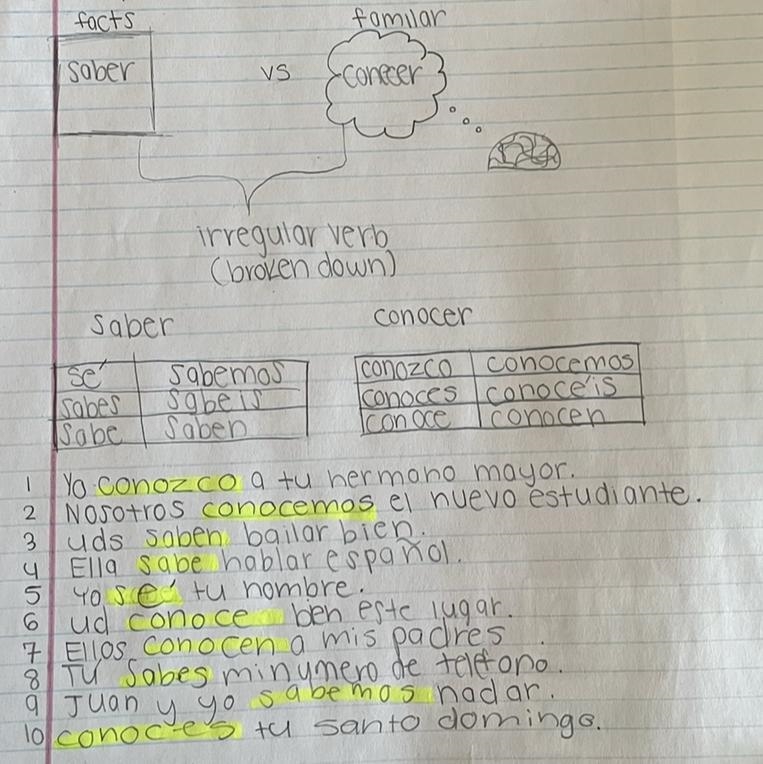 facts
familar
saber
vs
conocer
irregular verb
(broken down)
saber
conocer
sé sabemos
sabes sabeis
sabe saben
conozco conocemos
conoces conocéis
conoce conocen
1 Yo conozco a tu hermano mayor.
2 Nosotros conocemos el nuevo estudiante.
3 uds saben bailar bien.
4 Ella sabe hablar español.
5 Yo sé tu nombre.
6 ud conoce ben este lugar.
7 Ellos conocen a mis padres.
8 Tú sabes mi numero de teléfono.
9 Juan y yo sabemos nadar.
10 conoces tu santo domingo.